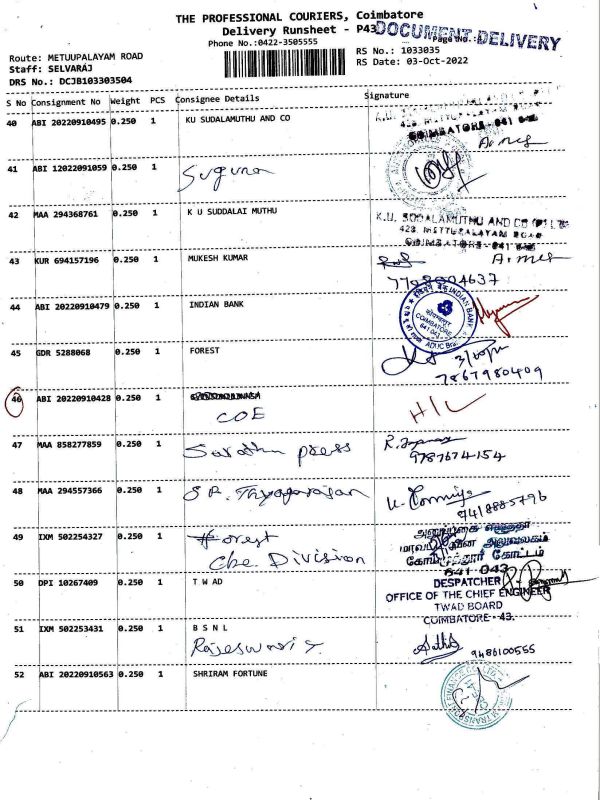 THE PROFESSIONAL COURIERS, Coimbatore
Delivery Runsheet - P43
DOCUMENT DELIVERY
Page No.:
Phone No.:0422-3505555
Route: METUUPALAYAM ROAD
RS No.: 1033035
Staff: SELVARAJ
RS Date: 03-Oct-2022
DRS No.: DCJB103303504
S No Consignment No Weight PCS Consignee Details Signature
40 ABI 20220910495 0.250 1 KU SUDALAMUTHU AND CO
COIMBATORE-641
41 ABI 12022091059 0.250 1 Suguna
42 MAA 294368761 0.250 1 K U SUDDALAI MUTHU
K.U. SODALAMUTHU AND CO (P) LTD
428, METTUPALAYAM ROAD
COIMBATORE-641
43 KUR 694157196 0.250 1 MUKESH KUMAR
44 ABI 20220910479 0.250 1 INDIAN BANK
INDIAN BANK
COIMBATORE
641 043
45 GDR 5288068 0.250 1 FOREST
7867980409
46 ABI 20220910428 0.250 1
COE
H/L
47 MAA 858277859 0.250 1 press
9787674154
48 MAA 294557366 0.250 1 S.R. Thyagarajan
9418885796
49 IXM 502254327 0.250 1 Forest
Cbe Division
அலுவலகம்
கோட்டம்
641 043
50 DPI 10267409 0.250 1 T W A D
DESPATCHER
OFFICE OF THE CHIEF ENGINEER
TWAD BOARD
COIMBATORE - 43.
51 IXM 502253431 0.250 1 B S N L
Rajeswari S
9486100555
52 ABI 20220910563 0.250 1 SHRIRAM FORTUNE